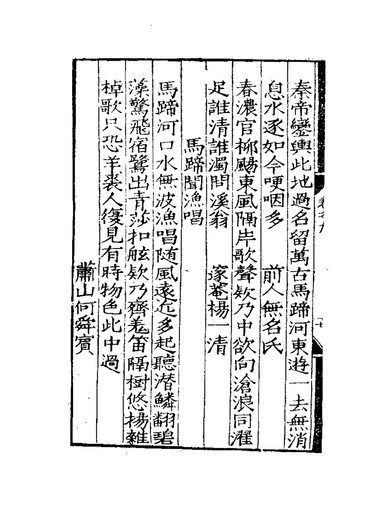 秦帝鑾輿此地過名留萬古馬蹄河東遊一去無消
息水逐如今哽咽多　前人無名氏
春濃官柳颺東風隔岸歌聲欸乃中欲向滄浪同濯
足誰清誰濁問溪翁　邃菴楊一清
馬蹄聞漁唱
馬蹄河口水無波漁唱随風遠近多起聽潜鱗翻碧
藻驚飛宿鷺出青莎扣舷欸乃齊羗笛隔樹悠楊雜
棹歌只恐羊裘人復見有時物色此中過
蕭山何舜賓